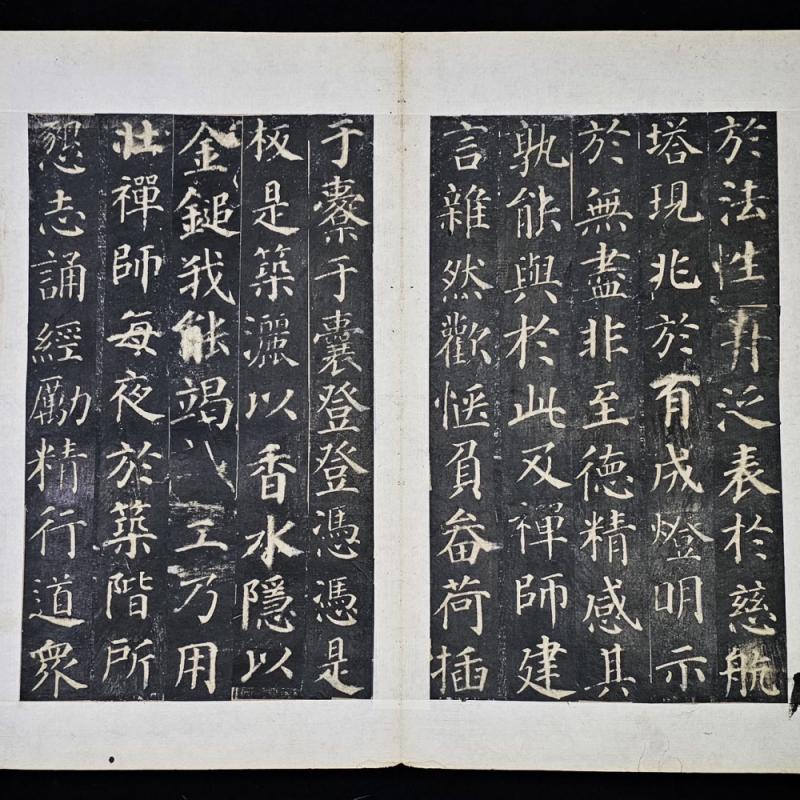 於法性舟泛表於慈航
塔現兆於有成燈明示
於無盡非至德精感其
孰能與於此及禪師建
言雜然歡愜負畚荷插
于橐于囊登登憑憑是
板是築灑以香水隱以
金鎚我能竭工乃用
壯禪師每夜於築階所
懇志誦經勵精行道眾